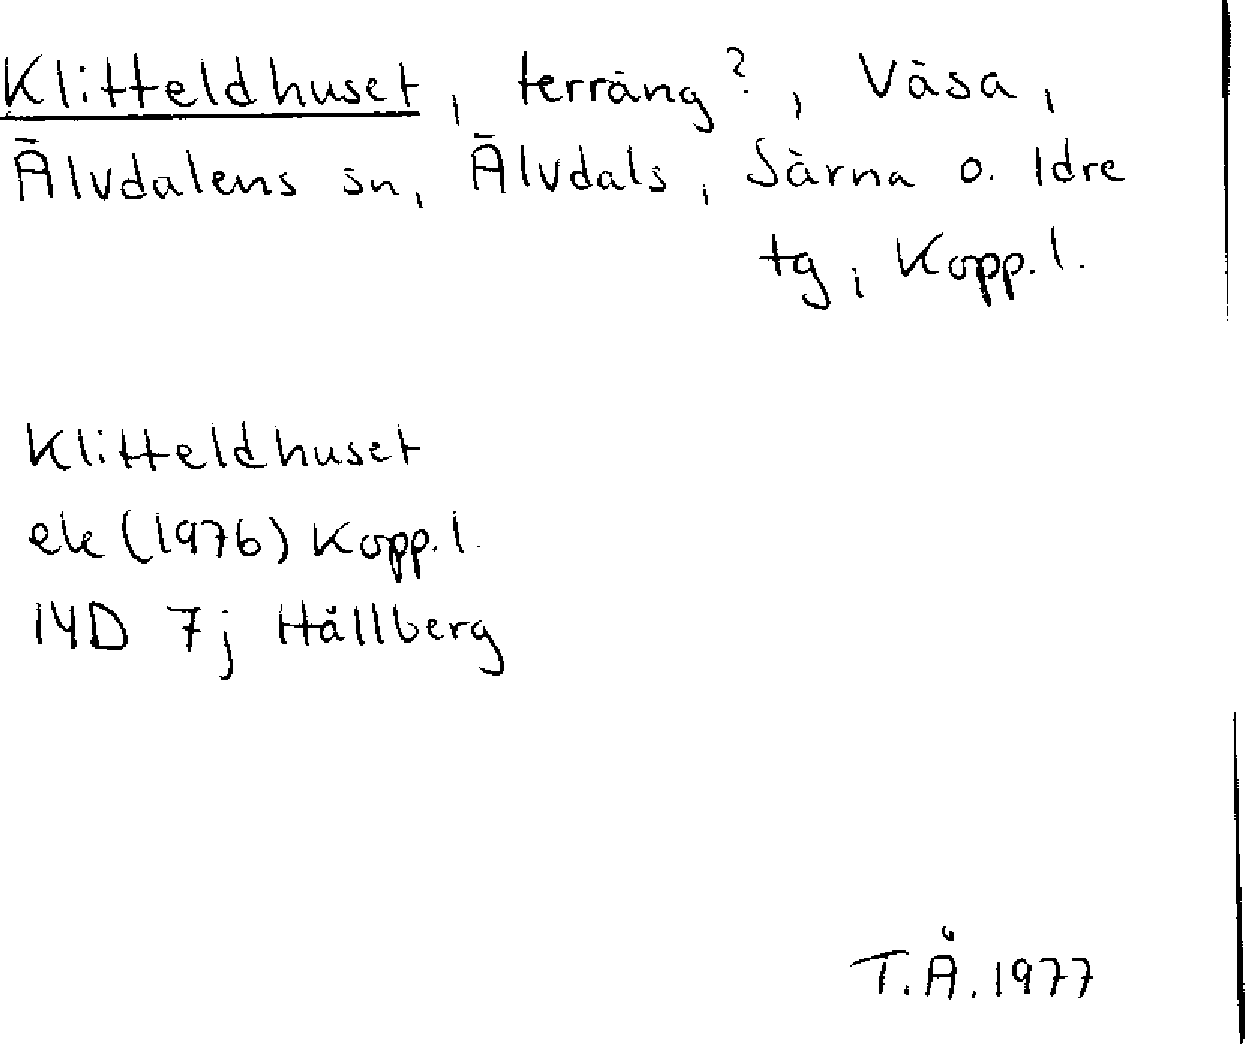 Klitteldhuset, terräng?, Våsa,
Älvdalens sn, Älvdals, Särna o. Idre
tg, Kopp. l.
Klitteldhuset
ek (1976) Kopp. l.
14D 7j Hållberg
T.Å. 1977